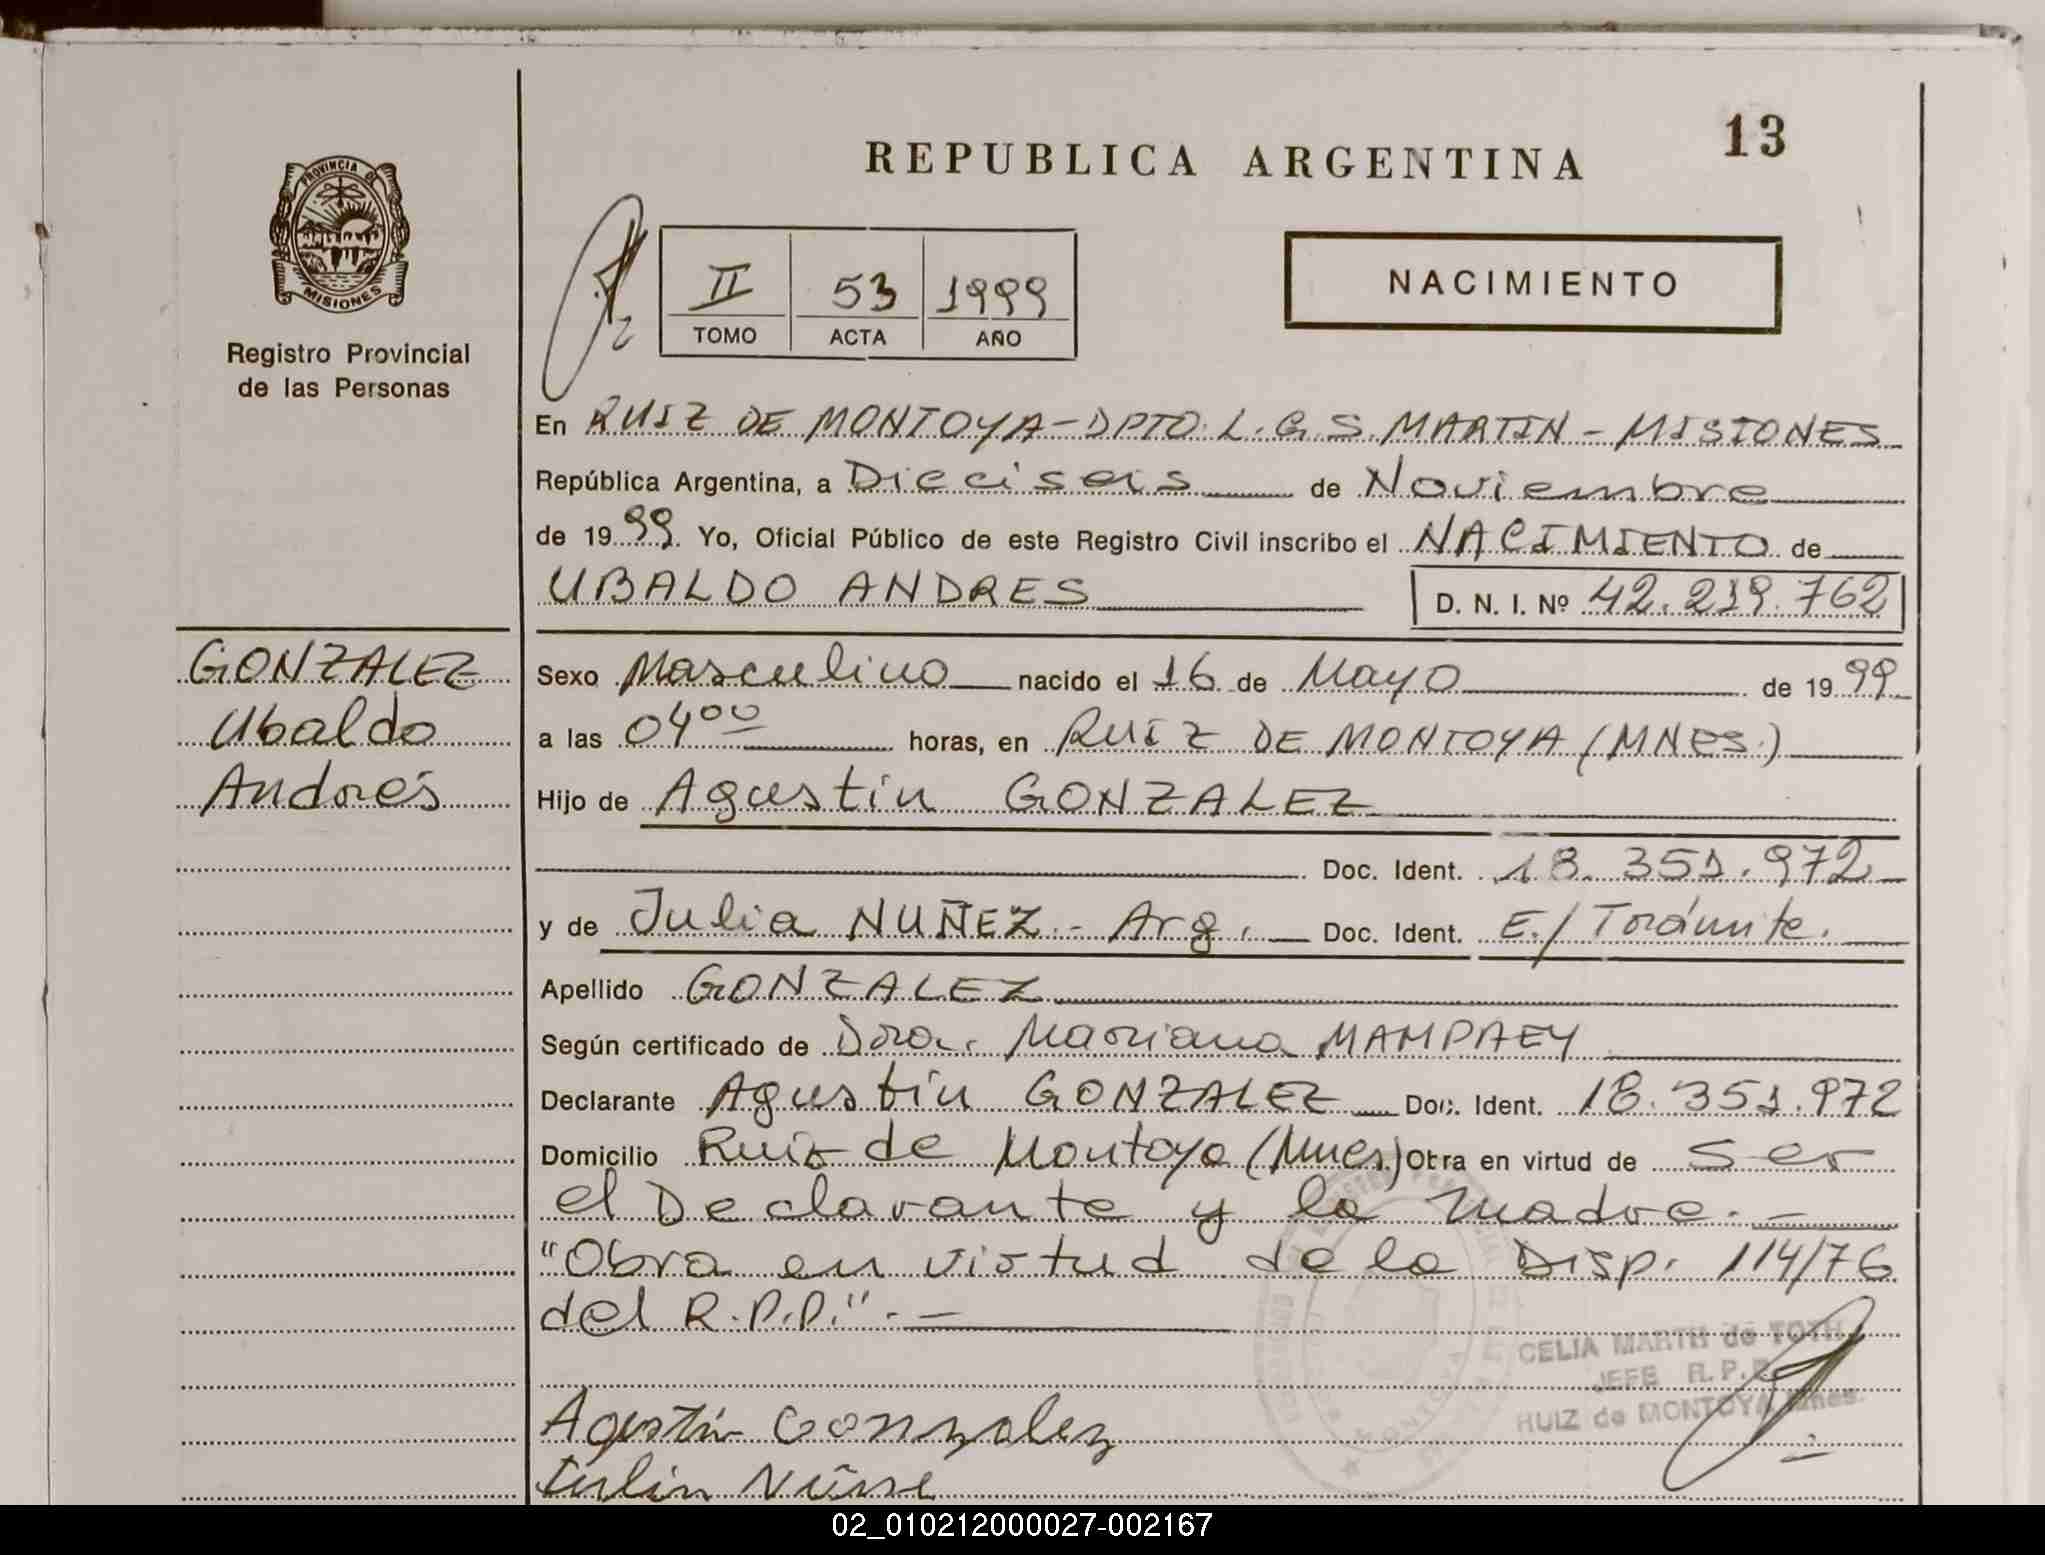 13
REPUBLICA ARGENTINA
PROVINCIA DE
MISIONES
Registro Provincial
de las Personas
II 53 1999
TOMO ACTA AÑO
NACIMIENTO
En RUIZ DE MONTOYA-DPTO. L.G.S. MARTIN - MISIONES
República Argentina, a Dieciseis de Noviembre
de 1999. Yo, Oficial Público de este Registro Civil inscribo el NACIMIENTO de
UBALDO ANDRES D. N. I. Nº 42.219.762
GONZALEZ
Ubaldo
Andrés
Sexo Masculino nacido el 16 de Mayo de 1999
a las 0400 horas, en RUIZ DE MONTOYA (MNES.)
Hijo de Agustin GONZALEZ
Doc. Ident. 18.351.972
y de Julia NUÑEZ.- Arg. Doc. Ident. E./Trámite.
Apellido GONZALEZ
Según certificado de Dra. Mariana MAMPAEY
Declarante Agustin GONZALEZ Doc. Ident. 18.351.972
Domicilio Ruiz de Montoya (Mnes.) Obra en virtud de ser
el Declarante y la madre.-
"Obra en virtud de la Disp. 114/76
del R.P.P.".-
CELIA MARTH de TOTH
JEFE R.P.P.
RUIZ de MONTOYA Mnes.
Agustin Gonzalez
02_010212000027-002167